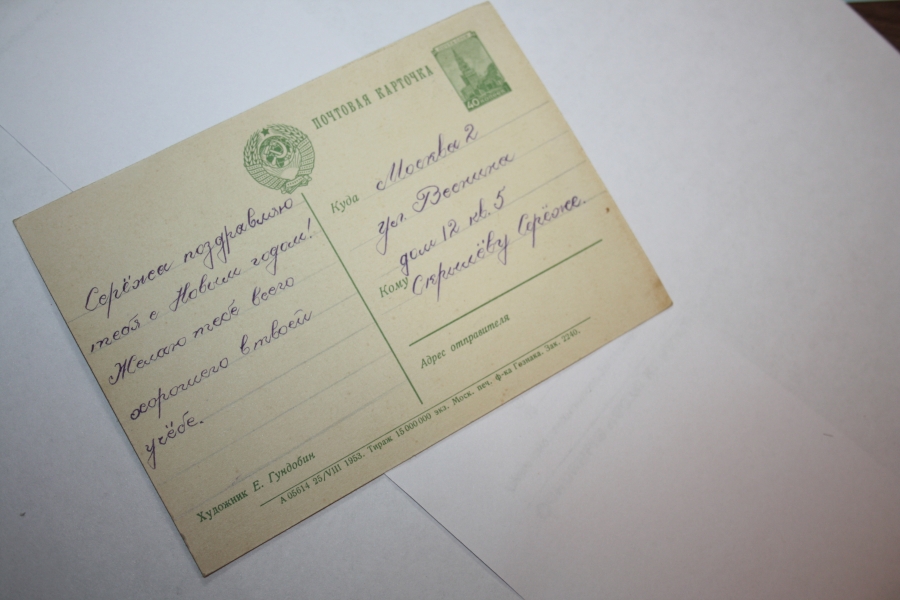 ПОЧТОВАЯ КАРТОЧКА
40
Серёжа поздравляю
тебя с Новым годом!
Желаю тебе всего
хорошего в твоей
учёбе.
Куда Москва 2
ул. Веснина
дом 12 кв. 5
Кому Скрылёву Серёже.
Адрес отправителя
Художник Е. Гундобин
А 05614 25/VIII 1953. Тираж 15 000 000 экз. Моск. печ. ф-ка Гознака. Зак. 2240.